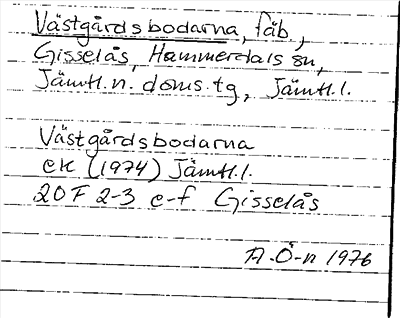 Västgårdsbodarna, fäb.,
Gisselås, Hammerdals sn,
Jämtl. n. doms. tg, Jämtl. l.
Västgårdsbodarna
ek (1974) Jämtl. l.
20F 2-3 e-f Gisselås
A. Ö-n 1976